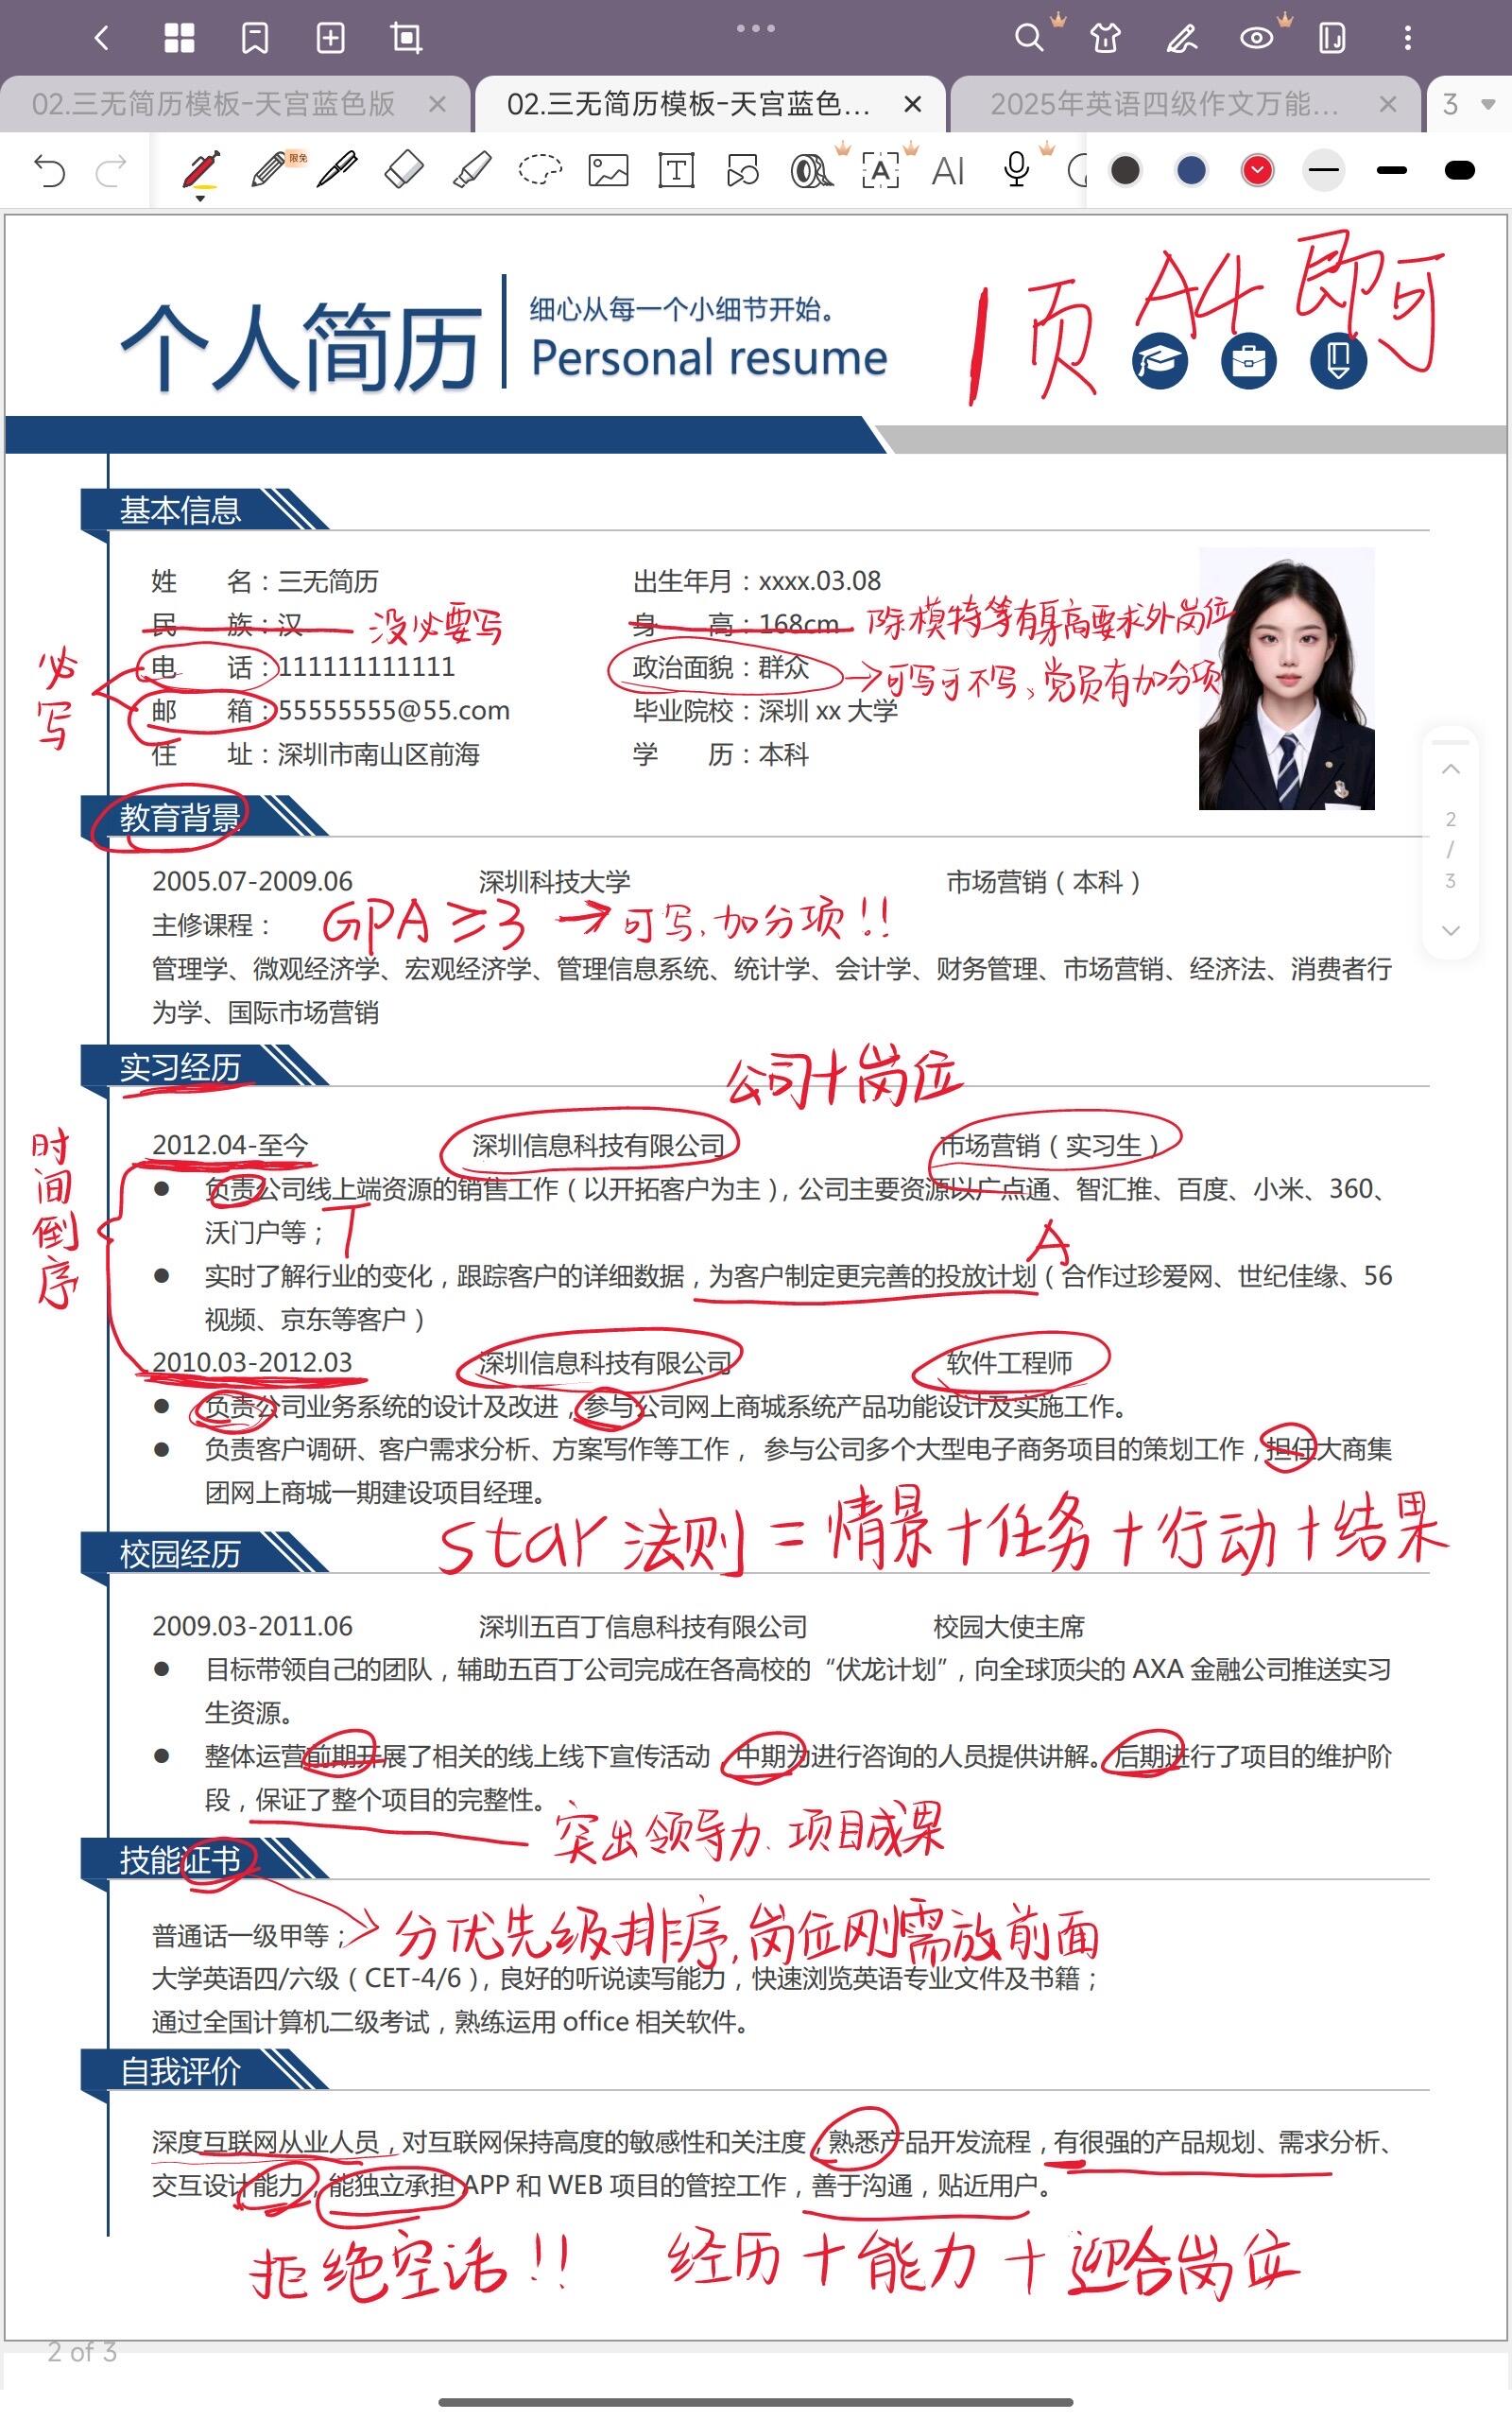 02.三无简历模板-天宫蓝色版
02.三无简历模板-天宫蓝色...
2025年英语四级作文万能...
3
限免
T
A
AI
个人简历
细心从每一个小细节开始。
Personal resume
1页 A4 即可
基本信息
姓 名：三无简历
出生年月：xxxx.03.08
民 族：汉
没必要写
身 高：168cm
除模特等有身高要求外岗位
必写
电 话：111111111111
政治面貌：群众
可写可不写、党员有加分项
邮 箱：55555555@55.com
毕业院校：深圳 xx 大学
住 址：深圳市南山区前海
学 历：本科
2
/
3
教育背景
2005.07-2009.06 深圳科技大学 市场营销（本科）
主修课程：
GPA ≥3 → 可写、加分项!!
管理学、微观经济学、宏观经济学、管理信息系统、统计学、会计学、财务管理、市场营销、经济法、消费者行
为学、国际市场营销
实习经历
公司+岗位
时间倒序
2012.04-至今 深圳信息科技有限公司 市场营销（实习生）
● 负责公司线上端资源的销售工作（以开拓客户为主），公司主要资源以广点通、智汇推、百度、小米、360、
沃门户等；
T
A
● 实时了解行业的变化，跟踪客户的详细数据，为客户制定更完善的投放计划（合作过珍爱网、世纪佳缘、56
视频、京东等客户）
2010.03-2012.03 深圳信息科技有限公司 软件工程师
● 负责公司业务系统的设计及改进，参与公司网上商城系统产品功能设计及实施工作。
● 负责客户调研、客户需求分析、方案写作等工作， 参与公司多个大型电子商务项目的策划工作，担任大商集
团网上商城一期建设项目经理。
star 法则 = 情景+任务+行动+结果
校园经历
2009.03-2011.06 深圳五百丁信息科技有限公司 校园大使主席
● 目标带领自己的团队，辅助五百丁公司完成在各高校的“伏龙计划”，向全球顶尖的 AXA 金融公司推送实习
生资源。
● 整体运营前期开展了相关的线上线下宣传活动，中期为进行咨询的人员提供讲解。后期进行了项目的维护阶
段，保证了整个项目的完整性。
突出领导力、项目成果
技能证书
分优先级排序,岗位刚需放前面
普通话一级甲等；
大学英语四/六级（CET-4/6），良好的听说读写能力，快速浏览英语专业文件及书籍；
通过全国计算机二级考试，熟练运用 office 相关软件。
自我评价
深度互联网从业人员，对互联网保持高度的敏感性和关注度，熟悉产品开发流程，有很强的产品规划、需求分析、
交互设计能力，能独立承担 APP 和 WEB 项目的管控工作，善于沟通，贴近用户。
拒绝空话!! 经历+能力+迎合岗位
2 of 3